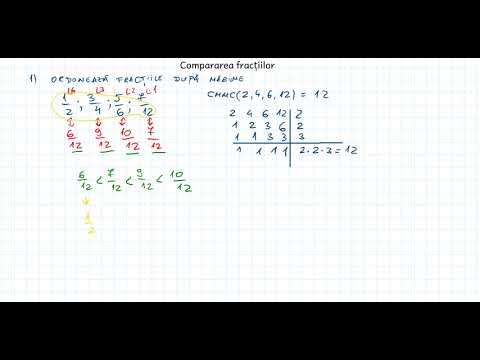 Compararea fracțiilor
1) ORDONEAZĂ FRACȚIILE DUPĂ MĂRIME
(6 (3 (2 (1
1/2 ; 3/4 ; 5/6 ; 7/12
CMMMC(2,4,6,12) = 12
6/12 9/12 10/12 7/12
2 4 6 12 | 2
1 2 3 6 | 2
1 1 3 3 | 3
1 1 1 1 | 2·2·3=12
6/12 < 7/12 < 9/12 < 10/12
1/2